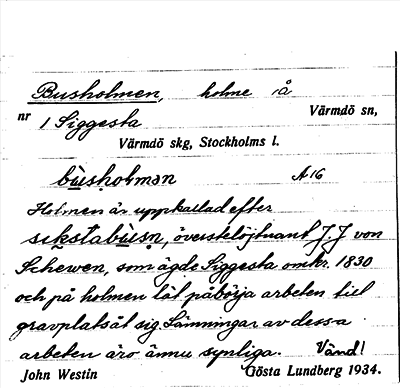 Busholmen, holme i å
nr 1 Siggesta Värmdö sn,
Värmdö skg, Stockholms l.
bùshołmən A 16
Holmen är uppkallad efter
sikstabùsn, överstelöjtnant J. J von
Schewen, som ägde Siggesta omkr. 1830
och på holmen lät påbörja arbeten till
gravplats åt sig. Lämningar av dessa
arbeten äro ännu synliga. Vänd!
John Westin Gösta Lundberg 1934.